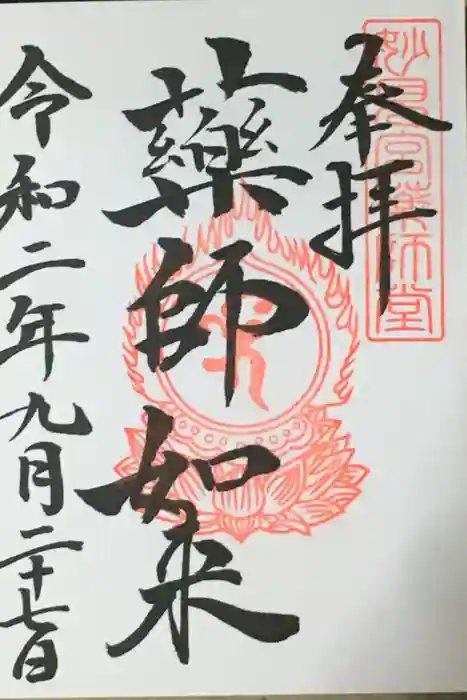 奉拝
妙見宮薬師堂
藥師如来
令和二年九月二十七日